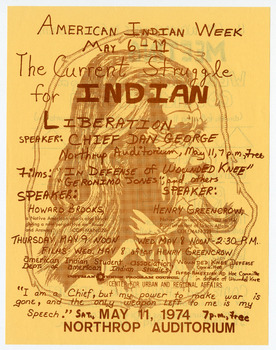 AMERICAN INDIAN WEEK
MAY 6-11
The Current Struggle
for INDIAN
LIBERATION
SPEAKER: CHIEF DAN GEORGE
Northrop Auditorium, May 11, 7 p.m, Free
Films: "IN DEFENSE OF WOUNDED KNEE"
"GERONIMO JONES" and others
SPEAKER:
SPEAKER:
HOWARD BROOKS,
HENRY GREENCROW,
THURSDAY MAY 9 NOON
WED. MAY 8 NOON-2:30 P.M.
FILMS WED. MAY 8 after HENRY GREENCROW
American Indian Student Association
Dept. of American Indian Studies
CENTER FOR URBAN AND REGIONAL AFFAIRS
"I am a Chief, but my power to make war is
gone, and the only weapon left to me is my
Speech." Sat, MAY 11, 1974 7 p.m, Free
NORTHROP AUDITORIUM